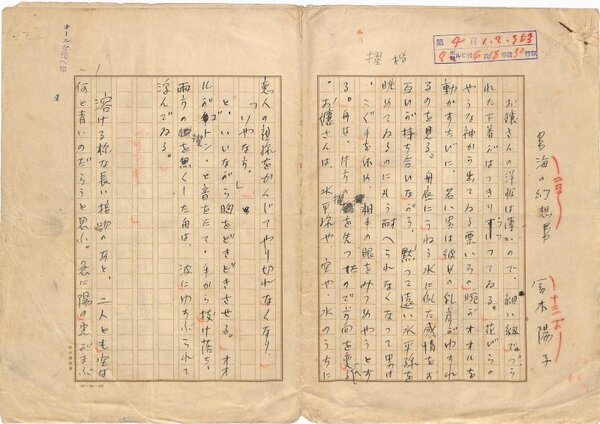 夏海の幻想男
宮木陽子
お嬢さんの洋服は薄いので、細い紐でつら
れた下着がはつきりうつつてゐる。花びらの
やうな袖から出てゐる栗いろの腕がオオルを
動かすたびに、若い男は彼女の乳房がゆられ
るのを見る。舟底にうねる水に似た感情をお
互いが持ち合いながら、黙つて遠い水平線を
眺めてゐるのにもう耐へられなくなつて男は
こぐ手を休め、相手の眼をみつめやうとす
る。舟は、片方の櫂を失つたので方向を変へ
お嬢さんは、水平線や空や水のうちに
恋人の視線をかんじてやり切れなくなり、
「いやな方。」
と、いいながら胸をどきどきさせる。オオ
ルがゴトン、と音をたてて手から抜け落ち、
両方の櫂を無くした舟は、波にゆすぶられて
浮んでゐる。
溶ける様な長い接吻のあと、二人とも空は
何と青いのだらうと思ふ。急に陽の光がまぶ